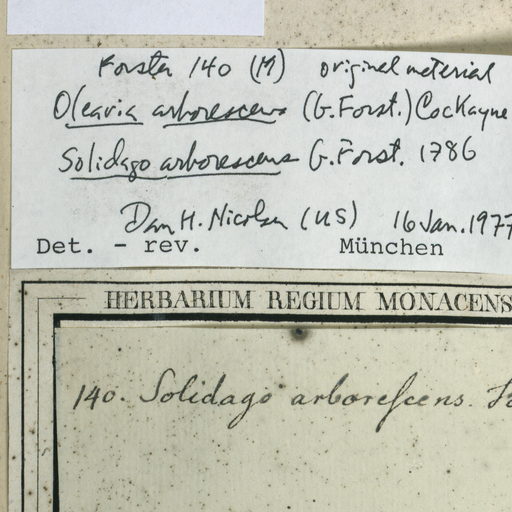 Forster 140 (M) original material
Olearia arborescens (G.Forst.) Cockayne
Solidago arborescens G.Forst. 1786
Dan H. Nicolson (US) 16 Jan. 1977
Det. - rev. München
HERBARIUM REGIUM MONACENS
140. Solidago arboreſcens.